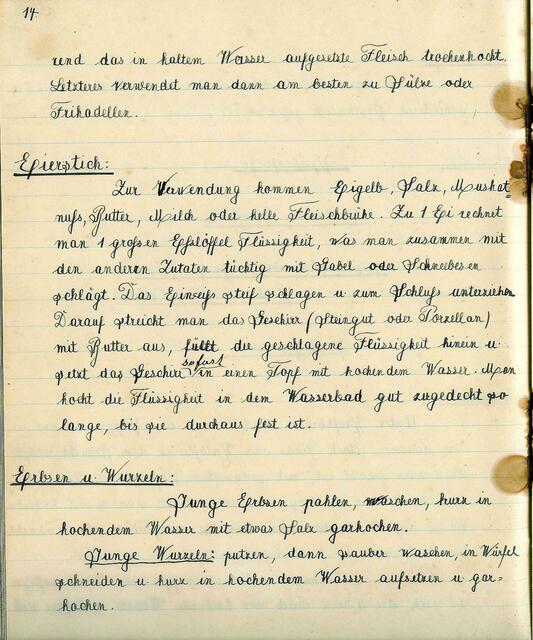 14
rend das in kaltem Wasser aufgesetzte Fleisch trockenkocht.
Letzteres verwendet man dann am besten zu Sülze oder
Frikadellen.
Eierstich:
Zur Verwendung kommen Eigelb, Salz, Muskat=
nuß, Butter, Milch oder helle Fleischbrühe. Zu 1 Ei rechnet
man 1 großen Eßlöffel Flüssigkeit, was man zusammen mit
den anderen Zutaten tüchtig mit Gabel oder Schneebesen
schlägt. Das Eiweiß steif schlagen u. zum Schluß unterziehen
Darauf streicht man das Geschirr (Steingut oder Porzellan)
mit Butter aus, füllt die geschlagene Flüssigkeit hinein u.
sofort
setzt das Geschirr in einen Topf mit kochendem Wasser. Man
kocht die Flüssigkeit in dem Wasserbad gut zugedeckt so
lange, bis sie durchaus fest ist.
Erbsen u. Wurzeln:
Junge Erbsen pahlen, waschen, kurz in
kochendem Wasser mit etwas Salz garkochen.
Junge Wurzeln: putzen, dann sauber waschen, in Würfel
schneiden u. kurz in kochendem Wasser aufsetzen u. gar=
kochen.